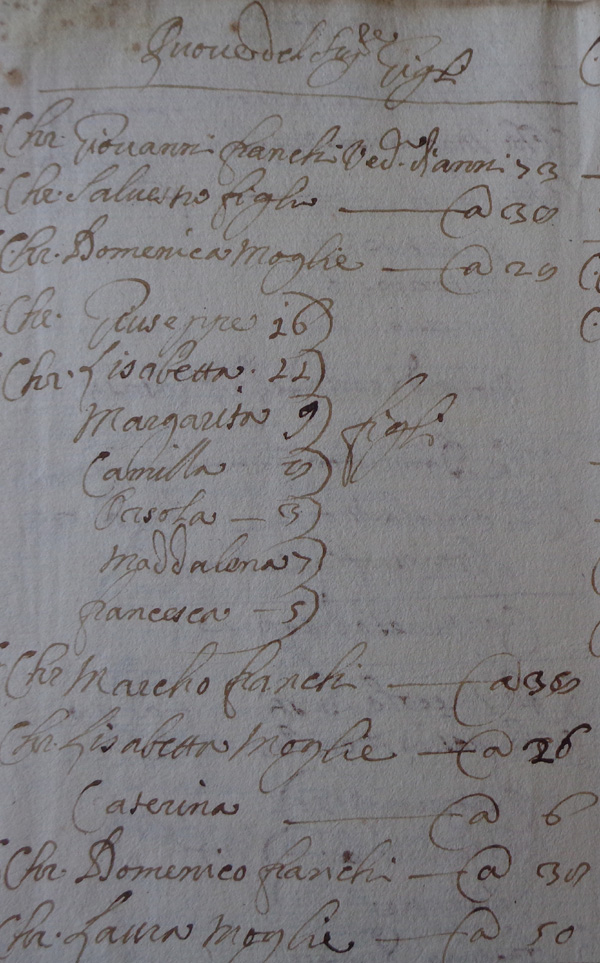 del Sig.re
Chr. Giovanni franchi Ved.o d'anni 73
Che. Salvestro figlio a 38
Chr. Domenica Moglie a 29
Che. Giuseppe 16)
Chr. Lisabetta. 11)
Margarita 9) figli
Camilla
Orsola — 3)
Maddalena 7)
francesca — 5)
Chr Marcho franchi a 38
Chr. Lisabetta Moglie a 26
Caterina a 6
Chr. Domenico franchi a
Chr. Laura Moglie a 50